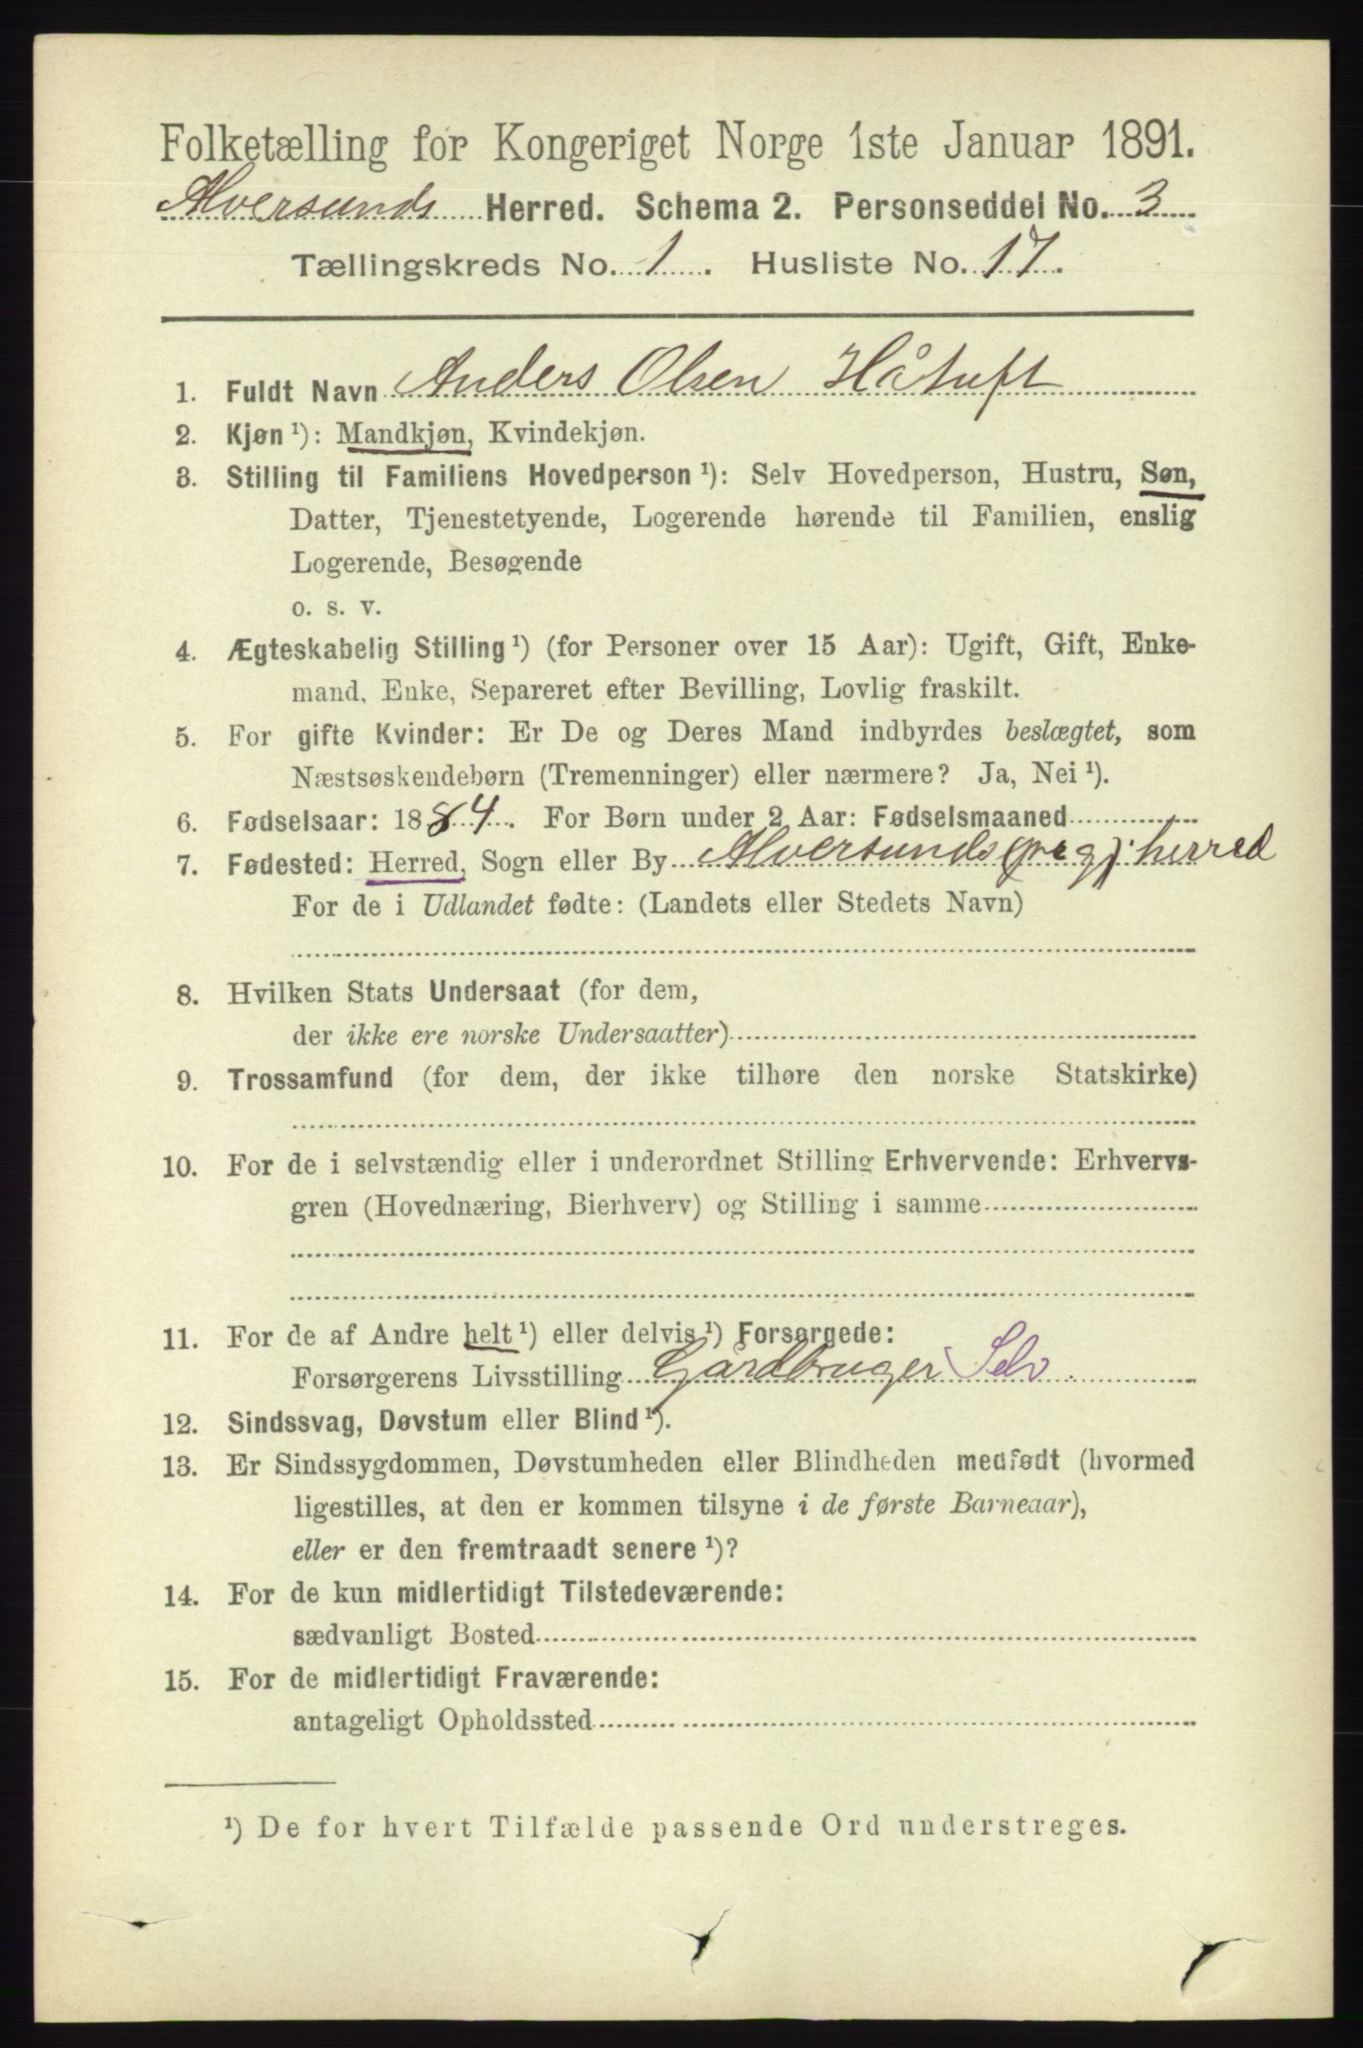 Folketælling for Kongeriget Norge 1ste Januar 1891.
Alversunds Herred. Schema 2. Personseddel No. 3
Tællingskreds No. 1. Husliste No. 17.
1. Fuldt Navn Anders Olsen Håtuft
2. Kjøn ¹): Mandkjøn, Kvindekjøn.
3. Stilling til Familiens Hovedperson ¹): Selv Hovedperson, Hustru, Søn,
Datter, Tjenestetyende, Logerende hørende til Familien, enslig
Logerende, Besøgende
o. s. v.
4. Ægteskabelig Stilling ¹) (for Personer over 15 Aar): Ugift, Gift, Enke-
mand, Enke, Separeret efter Bevilling, Lovlig fraskilt.
5. For gifte Kvinder: Er De og Deres Mand indbyrdes beslægtet, som
Næstsøskendebørn (Tremenninger) eller nærmere? Ja, Nei ¹).
6. Fødselsaar: 1884. For Børn under 2 Aar: Fødselsmaaned
7. Fødested: Herred, Sogn eller By Alversunds (præg): herred
For de i Udlandet fødte: (Landets eller Stedets Navn)
8. Hvilken Stats Undersaat (for dem,
der ikke ere norske Undersaatter)
9. Trossamfund (for dem, der ikke tilhøre den norske Statskirke)
10. For de i selvstændig eller i underordnet Stilling Erhvervende: Erhvervs-
gren (Hovednæring, Bierhverv) og Stilling i samme
11. For de af Andre helt ¹) eller delvis ¹) Forsørgede:
Forsørgerens Livsstilling Gårdbruger Selv
12. Sindssvag, Døvstum eller Blind ¹).
13. Er Sindssygdommen, Døvstumheden eller Blindheden medfødt (hvormed
ligestilles, at den er kommen tilsyne i de første Barneaar),
eller er den fremtraadt senere ¹)?
14. For de kun midlertidigt Tilstedeværende:
sædvanligt Bosted
15. For de midlertidigt Fraværende:
antageligt Opholdssted
¹) De for hvert Tilfælde passende Ord understreges.